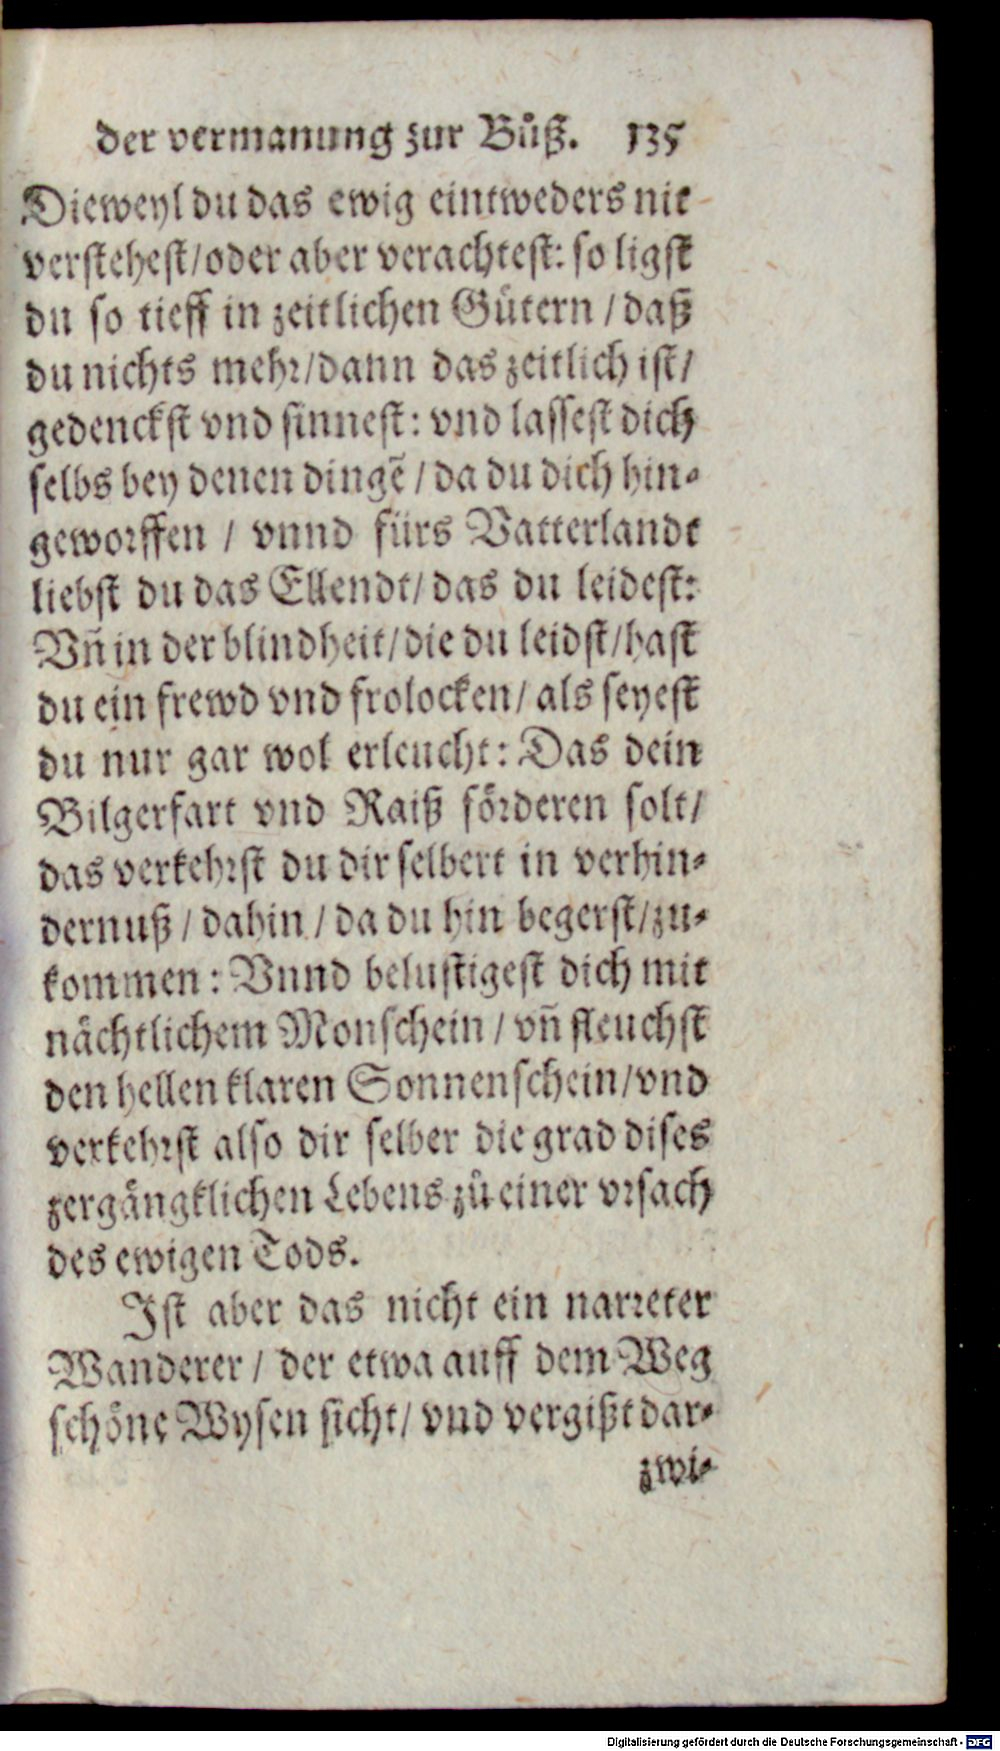 der vermanung zur Bůß. 135
Dieweyl du das ewig eintweders nit
verstehest/oder aber verachtest: so ligst
du so tieff in zeitlichen Gütern / daß
du nichts mehr/dann das zeitlich ist/
gedenckst vnd sinnest: vnd lassest dich
selbs bey denen dingẽ / da du dich hin-
geworffen / vnnd fürs Vatterlandt
liebst du das Ellendt/ das du leidest:
Vñ in der blindheit/die du leidst/hast
du ein frewd vnd frolocken/ als seyest
du nur gar wol erleucht: Das dein
Bilgerfart vnd Raiß förderen solt/
das verkehrst du dir selbert in verhin-
dernuß / dahin / da du hin begerst/zu-
kommen: Vnnd belustigest dich mit
nächtlichem Monschein / vñ fleuchst
den hellen klaren Sonnenschein/vnd
verkehrst also dir selber die grad dises
zergängklichen Lebens zů einer vrsach
des ewigen Tods.
Ist aber das nicht ein narreter
Wanderer / der etwa auff dem Weg
schöne Wysen sicht/ vnd vergißt dar-
zwi-
Digitalisierung gefördert durch die Deutsche Forschungsgemeinschaft - DFG